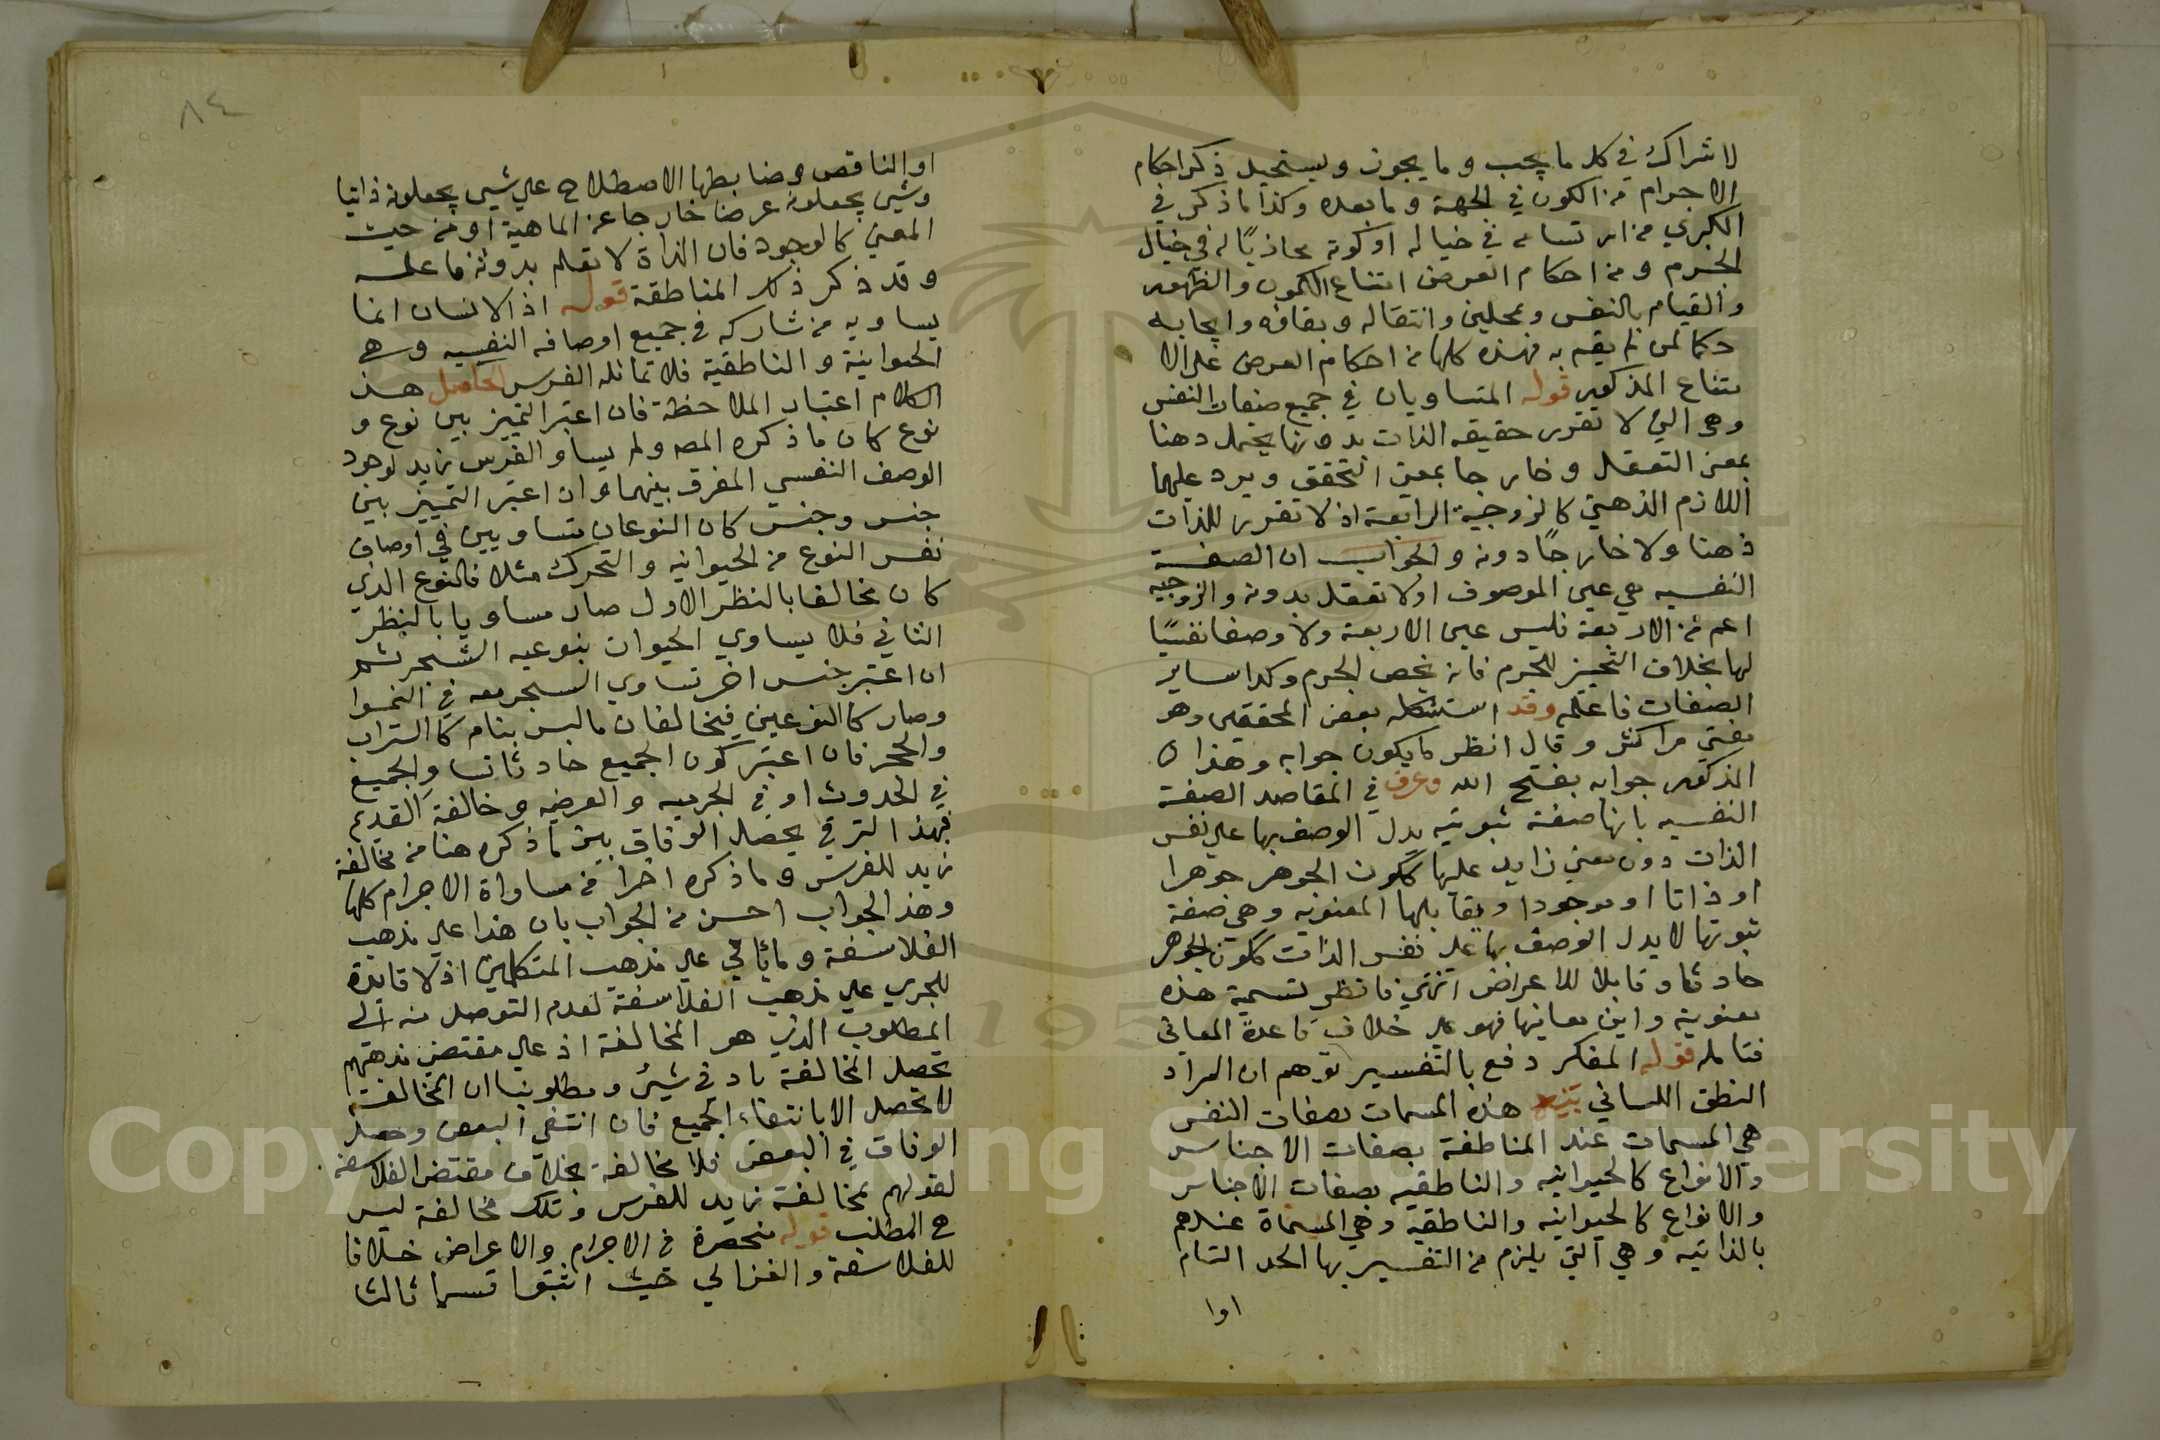 لاشراك في كل ما يجب وما يجوز ويستحيل ذكر احكام
الاجرام من الكون في الجهة وما بعده وكذا ما ذكر في
الكبرى من ارتسامه في خياله او كونه محاذيًا له في خيال
الجرم ومن احكام العرض امتناع الكمون والظهور
والقيام بالنفس وبمحلين وانتقاله وبقاؤه وايجابه
حكما لمن لم يقم به فهذه كلها من احكام العرض على الا
متناع المذكور قوله المتساويان في جميع صفات النفس
وهي التي لا تقرر حقيقه الذات بدونها يحتمل ذهنا
بمعنى التعقل وخارجا بمعنى التحقق ويرد عليهما
اللازم الذهني كالزوجية الرابعة اذ لا تقرر للذات
ذهنا ولا خارجًا دونه والجواب ان الصفة
النفسيه هي عين الموصوف اولا تعقل بدونه والزوجيه
اعم من الاربعة فليس عين الاربعة ولا وصفا نفسيًا
لها بخلاف التحيز للجرم فانه يخص الجرم وكدا ساير
الصفات فاعلمه وقد استشكله بعض المحققين وهو
مفتي مراكش وقال انظر ما يكون جوابه وهذا ه
المذكور جوابه بفتح الله وعرف في المقاصد الصفة
النفسيه بانها صفة ثبوتيه يدل الوصف بها علي نفس
الذات دون معنى زايد عليها ككون الجوهر جوهرا
او ذاتا او موجودا ويقابلها المعنويه وهي صفة
ثبوتها لا يدل الوصف بها على نفس الذات ككون الجوهر
حادثا وقابلا للاعراض انتهي فانظر تسمية هذه
معنوية واين معانيها فهو علي خلاف قاعدة المعاني
فتامله قوله المفكر دفع بالتفسير توهم ان المراد
النطق اللساني تنبيه هذه المسمات بصفات النفس
هي المسمات عند المناطقة بصفات الاجناس
والانواع كالحيوانيه والناطقيه بصفات الاجناس
والانواع كالحيوانيه والناطقيه وهي المسماة عندهم
بالذاتيه وهي التي يلزم من التفسير بها الحد التام
اوا
٨٤
او الناقص وضابطها الاصطلاح علي شيي يجعلونه ذاتيا
وشي يجعلونه عرضا خارجا عن الماهية او من حيث
المعنى كالوجود فان الذاة لا تعلم بدونه فاعلمه
وقد ذكر ذلك المناطقة قوله اذ الانسان انما
يساويه من شاركه في جميع اوصافه النفسيه وهي
الحيوانية والناطقية فلا تماثله الفرس الحاصل هذ
الكلام اعتبار الملاحظة فان اعتبر التميز بين نوع و
نوع كان ما ذكره المصـ ولم يساو الفرس زيد لوجود
الوصف النفسي المفرق بينهما وان اعتبر التمييز بين
جنس وجنس كان النوعان متساويين في اوصاف
نفس النوع من الحيوانيه والتحرك مثلا فالنوع الذي
كان مخالفا بالنظر الاول صار مساويا بالنظر
الثاني فلا يساوي الحيوان بنوعيه الشجر ثم
ان اعتبر جنس اخر تساوي الشجر معه في النموا
وصار كالنوعين فيخالفان ما ليس بنام كالتراب
والحجر فان اعتبر كون الجميع حادثا تساوا الجميع
في الحدوث او في الجرميه والعرضيه وخالفة القديم
فبهذا الترقي يحصل الوفاق بين ما ذكره هنا من مخالفة
زيد للفرس وما ذكره اخرا من مساواة الاجرام كلها
وهذ الجواب احسن من الجواب بان هذا علي مذهب
الفلاسفة وما ياتي علي مذهب المتكلمين اذ لا فايدة
للجري علي مذهب الفلاسفة لعدم التوصل منه الي
المطلوب الذي هو المخالفة اذ علي مقتضي مذهبهم
تحصل المخالفة بادني شيئ ومطلوبنا ان المخالفة
لا تحصل الا بانتفاء الجميع فان انتفي البعض وحصل
الوفاق في البعض فلا مخالفة بخلاف مقتضى الفلاسفه
لقولهم بمخالفة زيد للفرس وتلك مخالفة ليس
هي المطلب قوله منحصرة في الاجرام والاعراض خلافا
للفلاسفة والغزالي حيث اثبتوا قسما ثالثا
Copyright © King Saud University
1957